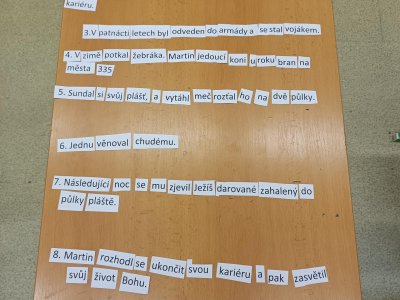 kariéru.
3.V patnácti letech byl odveden do armády a se stal vojákem.
4. V zimě potkal žebráka. Martin jedoucí koni u roku bran na
města 335
5. Sundal si svůj plášť, a vytáhl meč rozťal ho na dvě půlky.
6. Jednu věnoval chudému.
7. Následující noc se mu zjevil Ježíš darované zahalený do
půlky pláště.
8. Martin rozhodl se ukončit svou kariéru a pak zasvětil
svůj život Bohu.